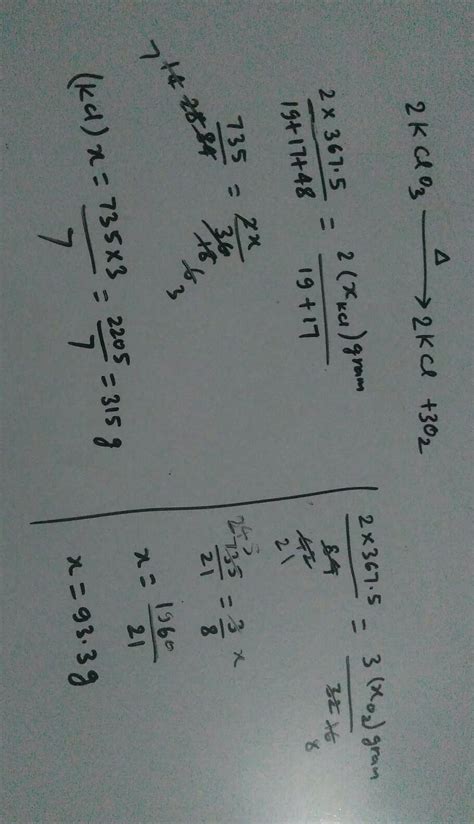 2KClO₃ —Δ→ 2KCl + 3O₂
2 × 367.5 / 19+17+48 = 2 (x_KCl) gram / 19+17
735 / 84 28 14 7 = 2x / 36 18 6 3
(KCl) x = 735×3 / 7 = 2205 / 7 = 315 g
2 × 367.5 / 84 42 21 = 3 (x_O₂) gram / 32 16 8
245 735 / 21 = 3 / 8 x
x = 1960 / 21
x = 93.3 g